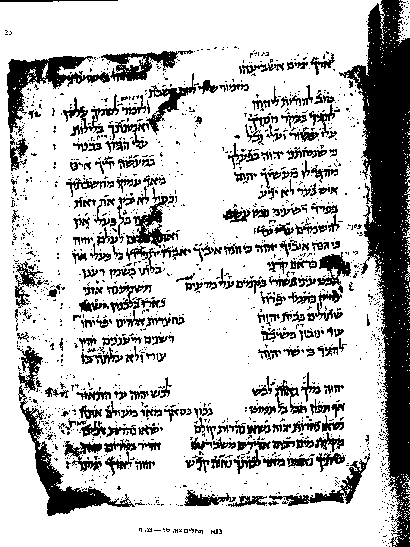 ארך ימים אשביעהו
מזמור שיר ליום השבת
טוב להודות ליהוה ולזמר לשמך עליון
להגיד בבקר חסדך ואמונתך בלילות
עלי עשור ועלי נבל עלי הגיון בכנור
כי שמחתני יהוה בפעלך במעשי ידיך ארנן
מה גדלו מעשיך יהוה מאד עמקו מחשבתיך
איש בער לא ידע וכסיל לא יבין את זאת
בפרח רשעים כמו עשב כל פעלי און
להשמדם עדי עד לעלם יהוה
כי הנה איביך יהוה כי הנה איביך יאבדו יתפרדו כל פעלי און
כראים קרני בלתי בשמן רענן
בקמים עלי מרעים תשמענה אזני
צדיק כתמר יפרח כארז בלבנון ישגה
שתולים בבית יהוה בחצרות אלהינו יפריחו
עוד ינובון בשיבה דשנים ורעננים יהיו
להגיד כי ישר יהוה צורי ולא עולתה בו
יהוה מלך גאות לבש לבש יהוה עז התאזר
אף תכון תבל בל תמוט נכון כסאך מאז מעולם אתה
נשאו נהרות יהוה נשאו נהרות קולם ישאו נהרות דכים
מקלות מים רבים אדירים משברי ים אדיר במרום יהוה
עדתיך נאמנו מאד לביתך נאוה קדש יהוה לארך ימים